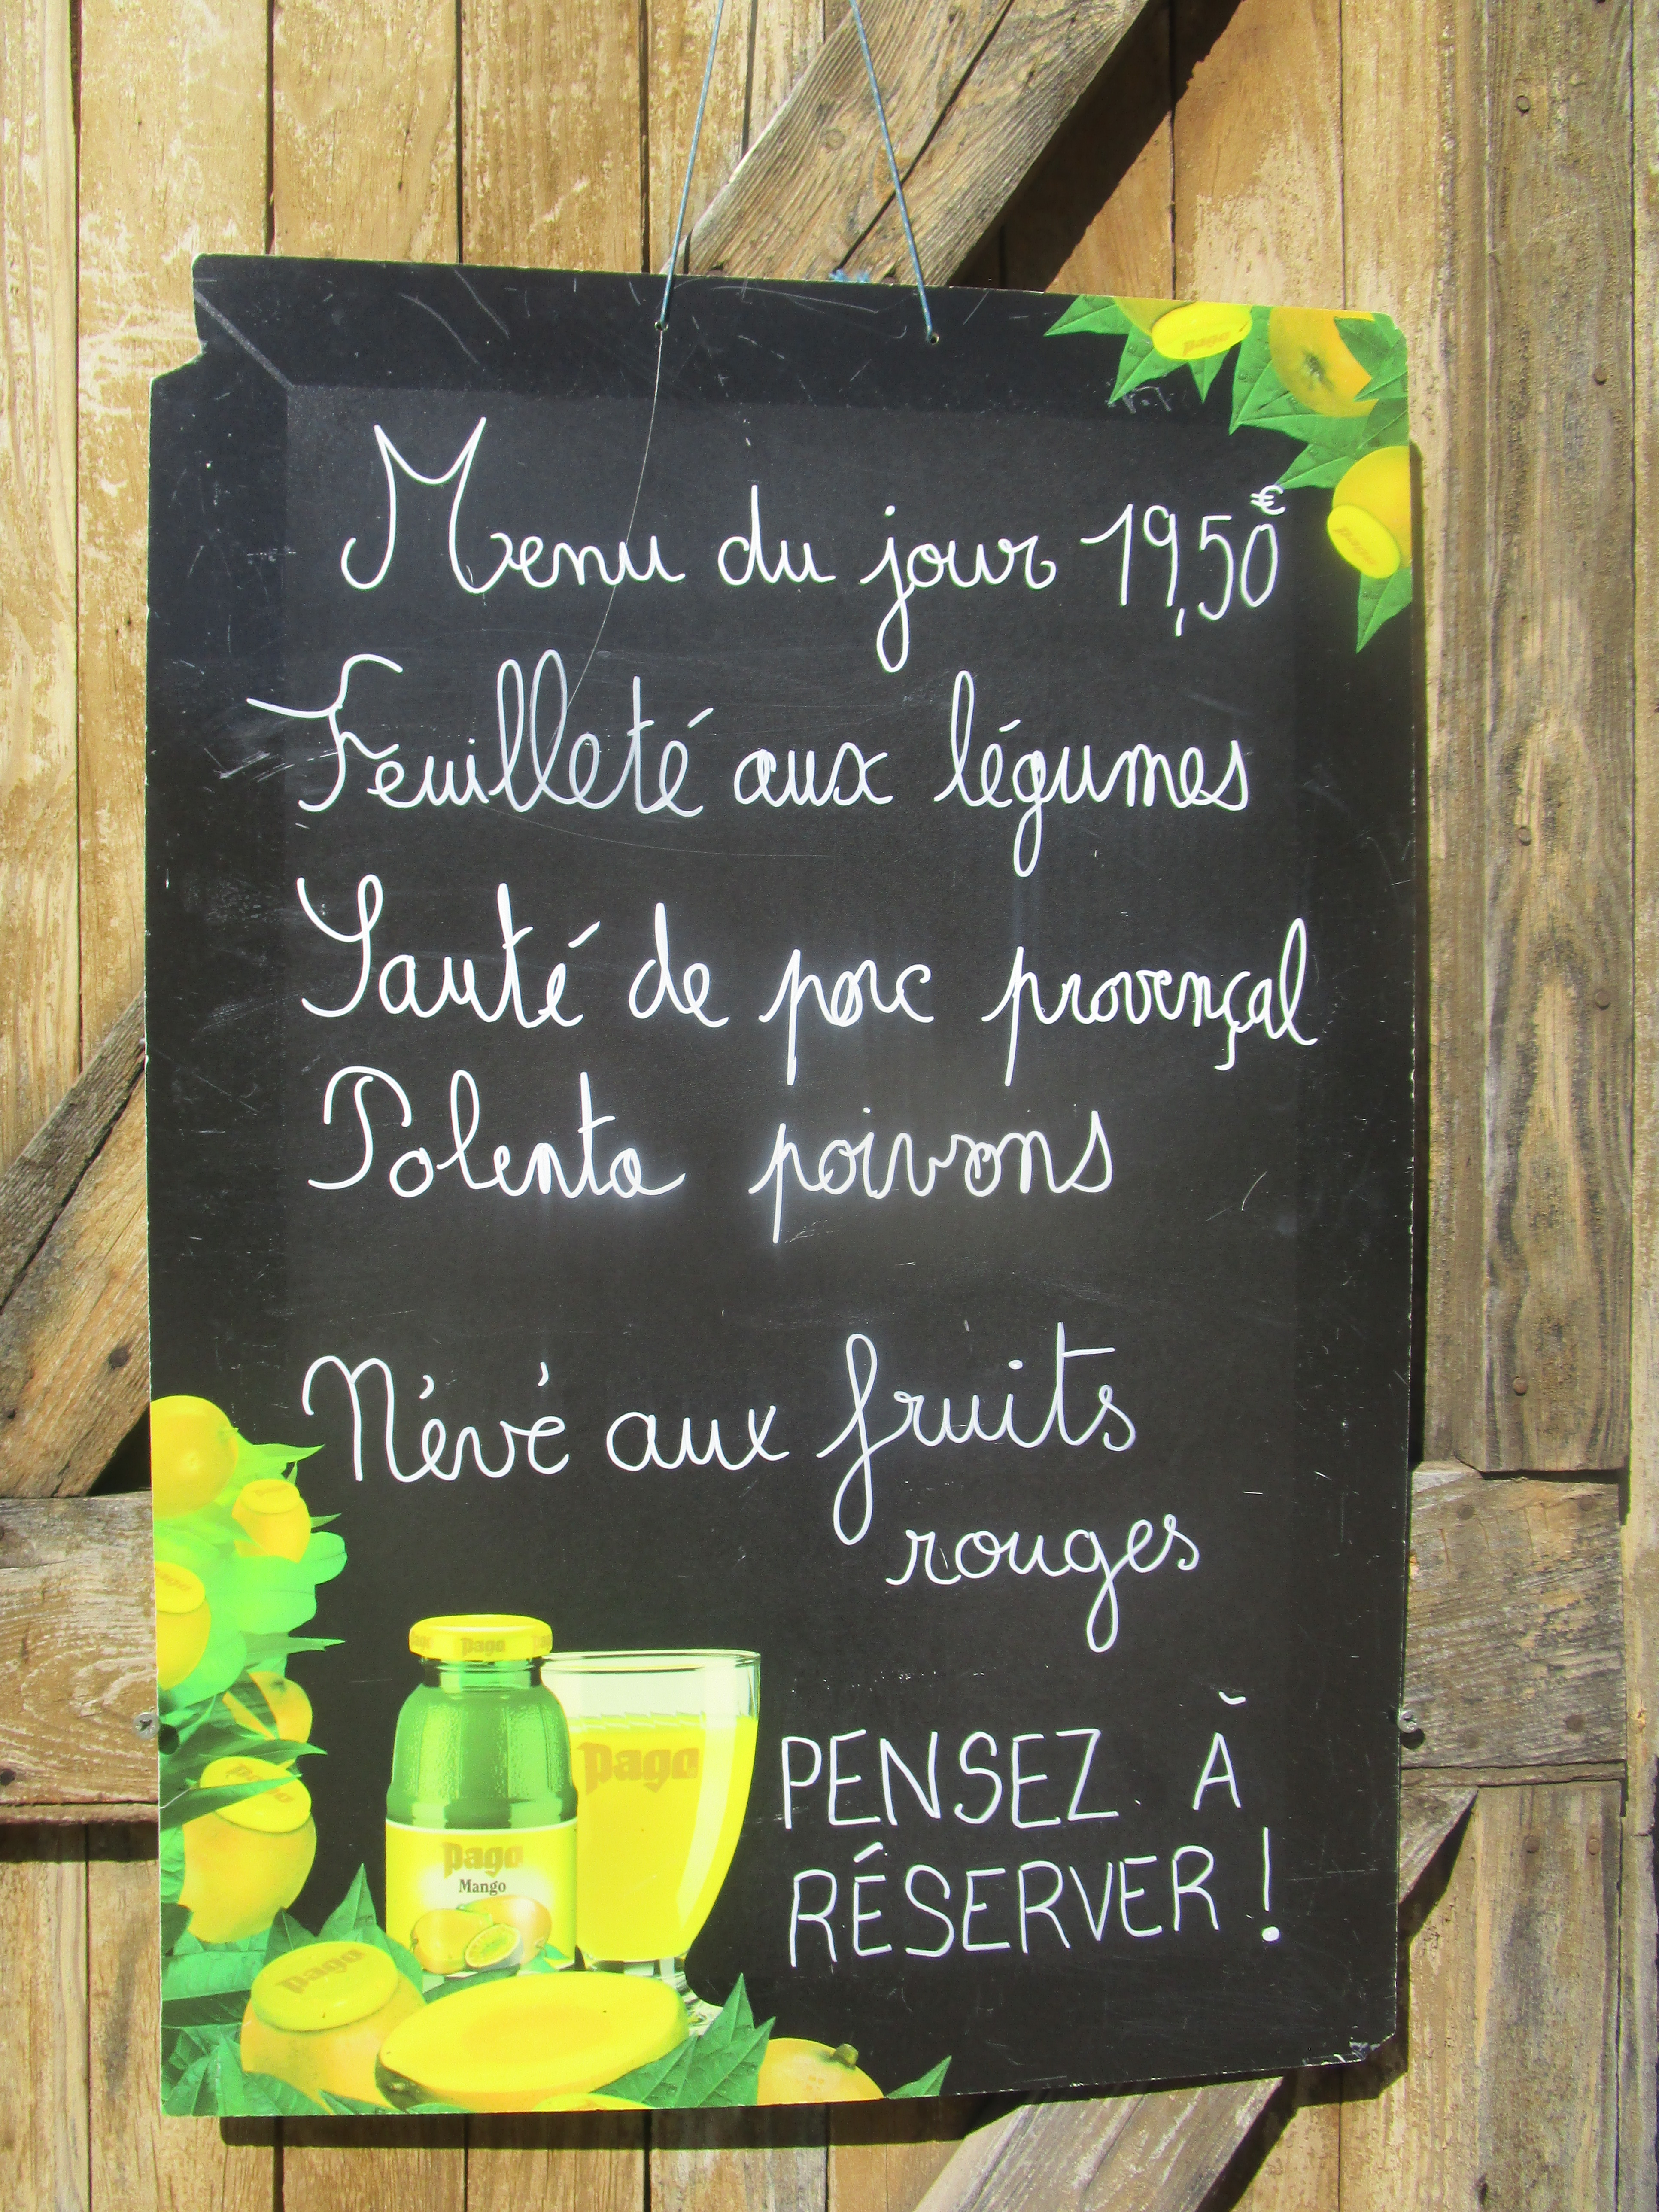 Menu du jour 19,50€
Feuilleté aux légumes
Sauté de porc provençal
Polenta poivrons
Névé aux fruits
rouges
PENSEZ À
RÉSERVER !
pago
pago
pago
pago
Mango
pago
pago
pago
pago